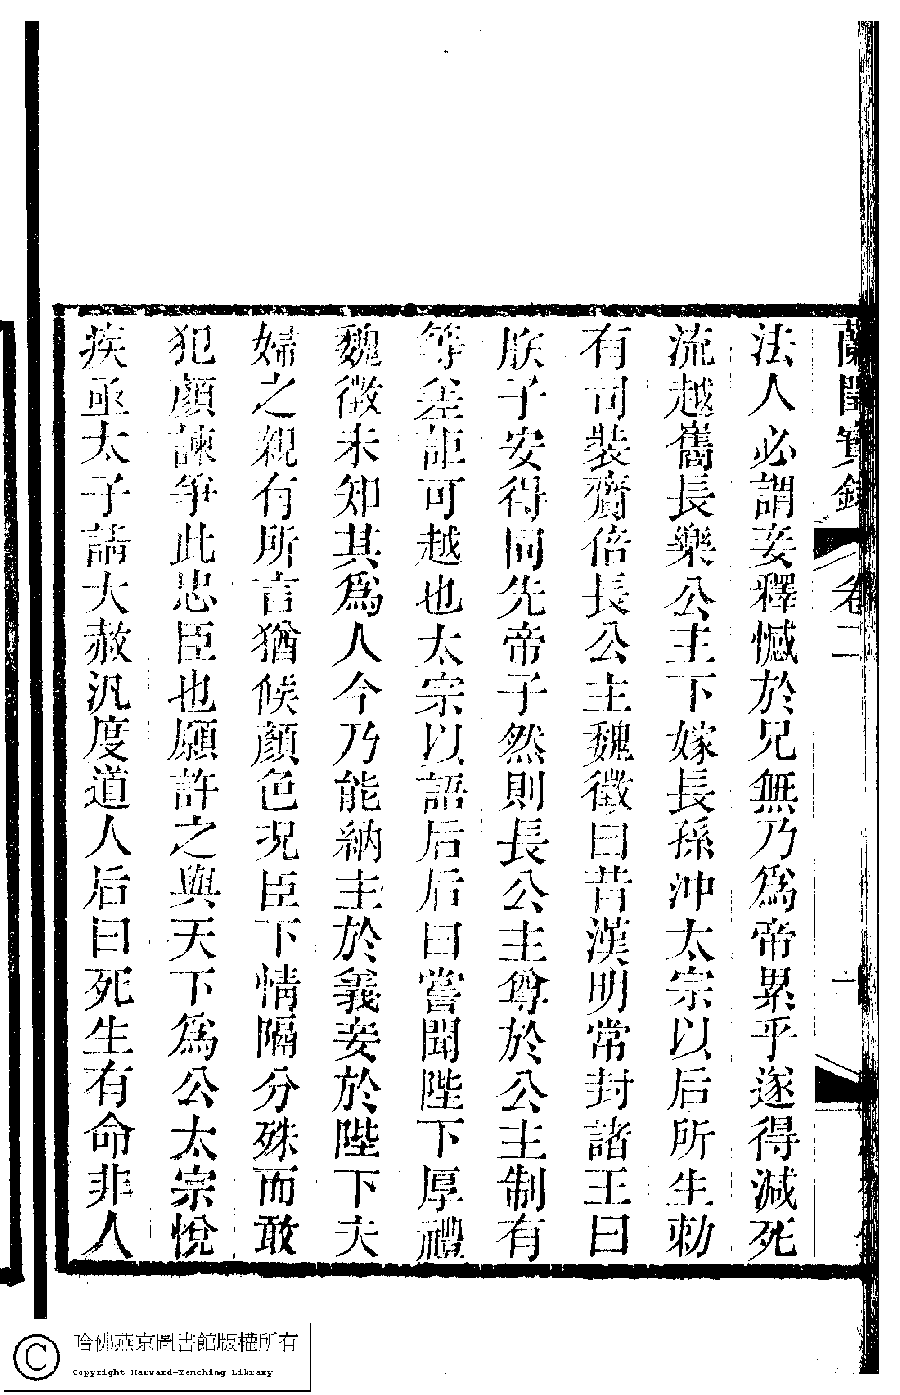 蘭閨寶錄 卷二 一
法人必謂妾釋憾於兄無乃爲帝累乎遂得減死
流越嶲長樂公主下嫁長孫沖太宗以后所生勅
有司裝齎倍長公主魏徵曰昔漢明帝封諸王曰
朕子安得同先帝子然則長公主尊於公主制有
等差詎可越也太宗以語后后曰嘗聞陛下厚禮
魏徵未知其爲人今乃能納主於義妾於陛下夫
婦之親有所言猶候顏色況臣下情隔分殊而敢
犯顏諫爭此忠臣也願許之與天下爲公太宗悅
疾亟太子請大赦汎度道人后曰死生有命非人
哈佛燕京圖書館版權所有
Copyright Harvard-Yenching Library